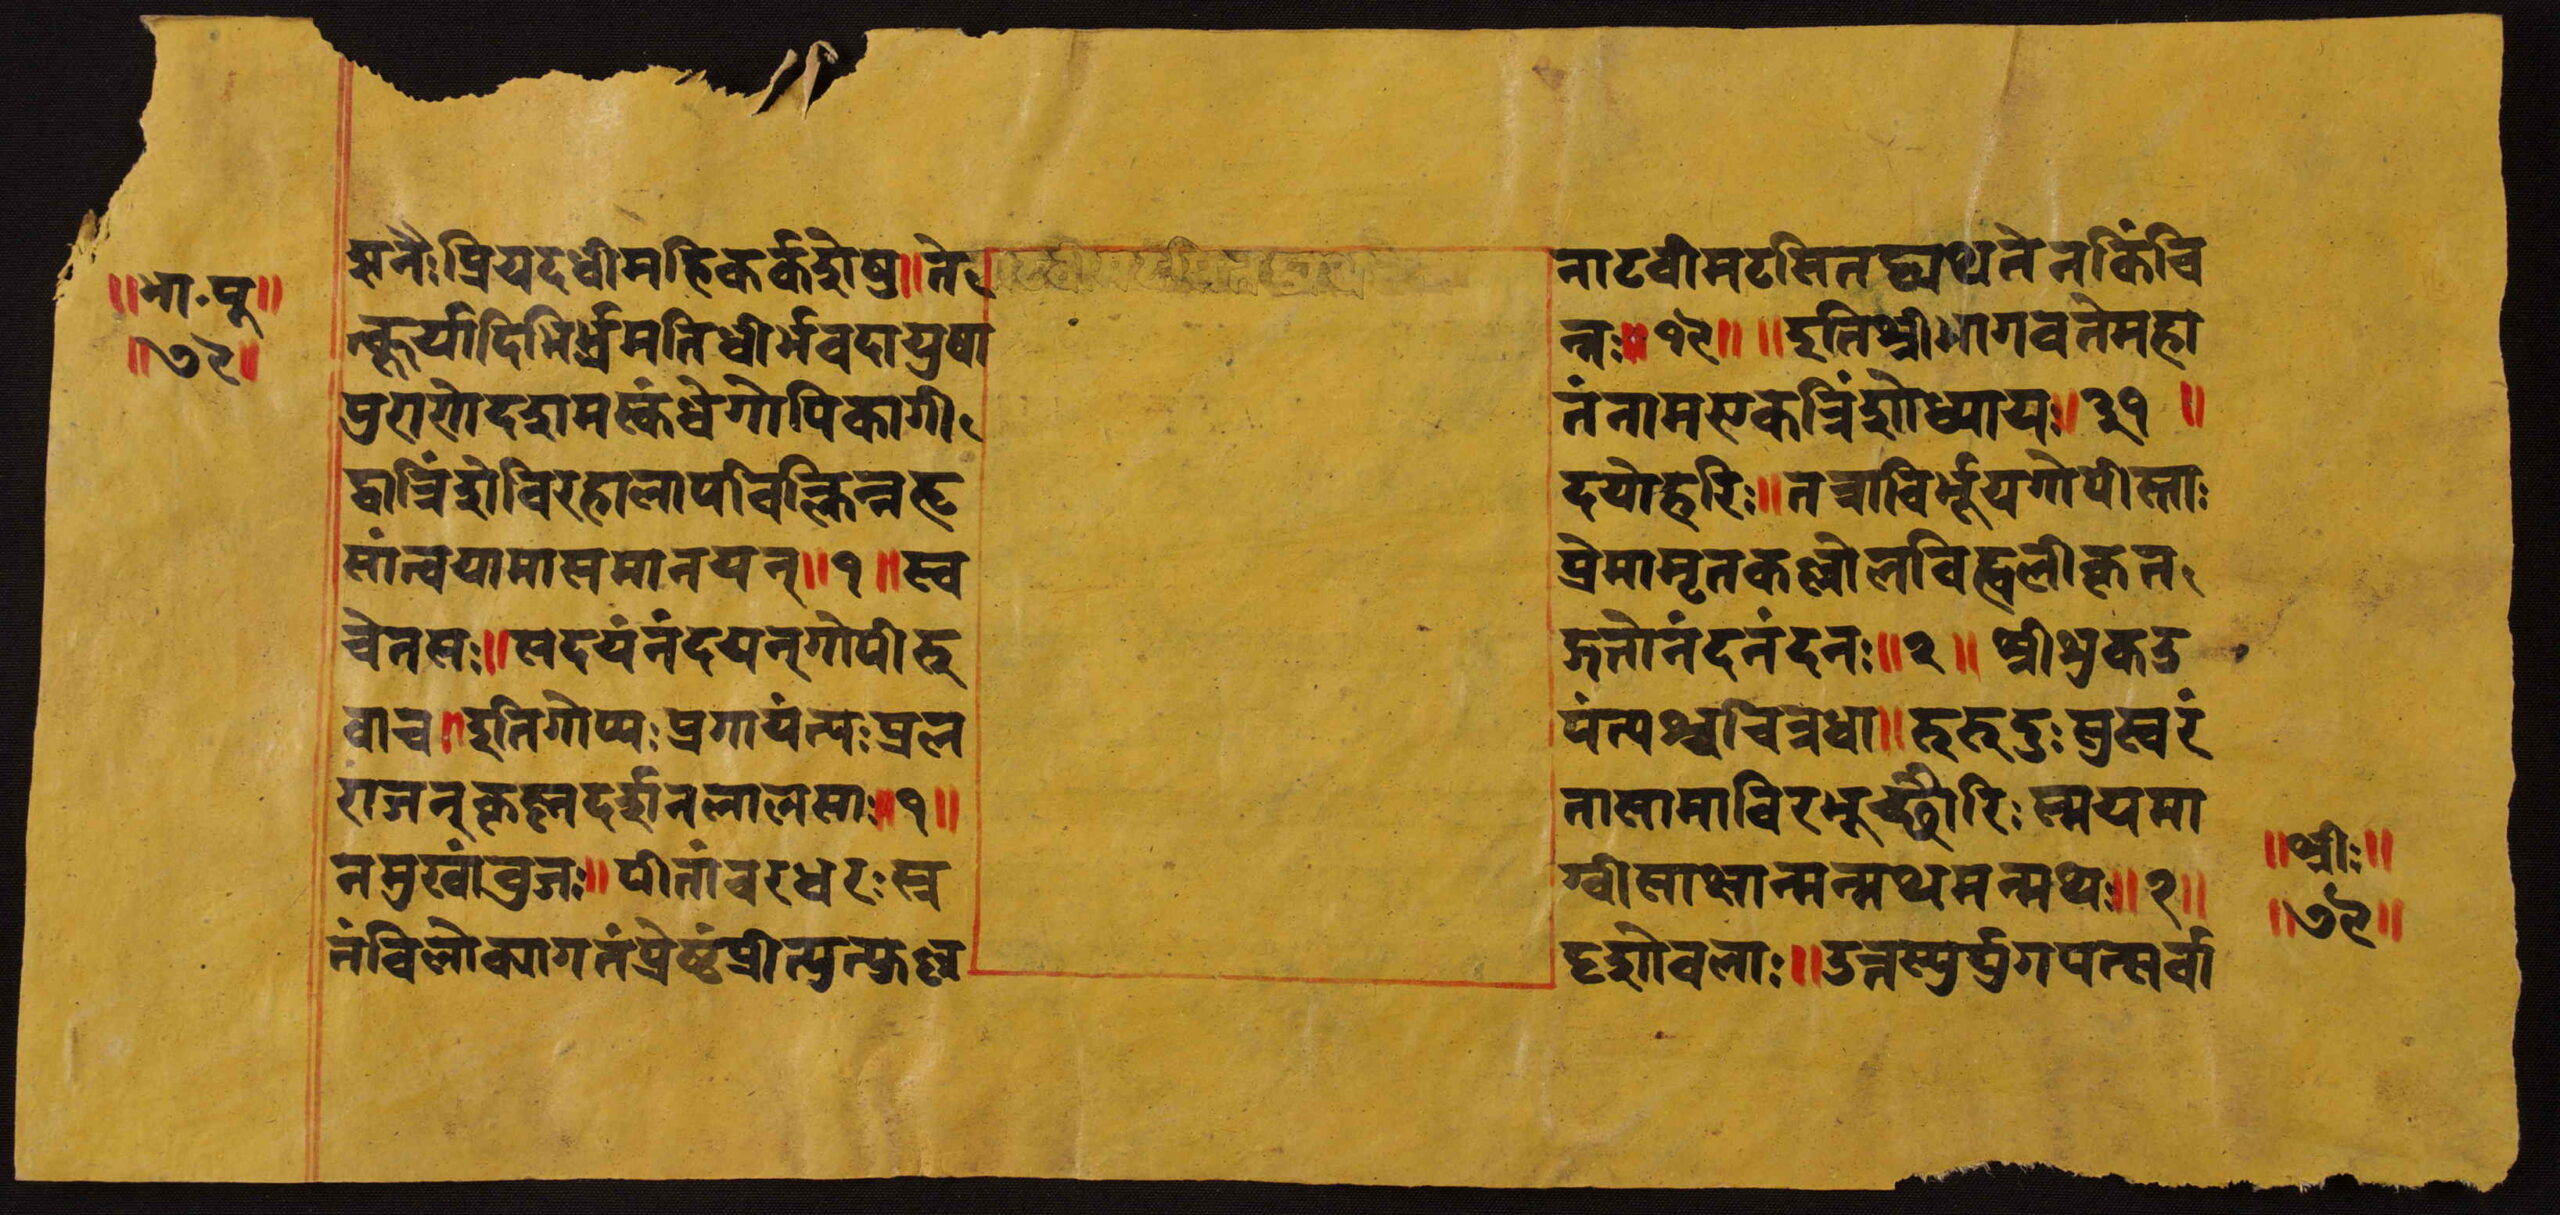 ॥भा.पू॥
॥७९॥
शनैःप्रियदधीमहिकर्कशेषु॥ते नाटवीमटसितद्व्यथतेनकिंचि
त्कूर्पादिभिर्भ्रमतिधीर्भवदायुषा न्नः॥१९॥ ॥इतिश्रीभागवतेमहा
पुराणेदशमस्कंधेगोपिकागी तंनामएकत्रिंशोध्यायः॥३१॥
द्वात्रिंशेविरहालापविक्लिन्नहृ दयोहरिः॥तत्राविर्भूयगोपीस्ताः
सांत्वयामासमानयन्॥१॥स्व प्रेमामृतकल्लोलविह्वलीकृत
चेतसः॥सदयंनंदयन्गोपीरु द्गतोनंदनंदनः॥२॥ श्रीशुकउ
वाच॥इतिगोप्यःप्रगायंत्यःप्रल पंत्यश्चचित्रधा॥रुरुदुःसुस्वरं
राजन्कृष्णदर्शनलालसाः॥१॥ तासामाविरभूच्छौरिःस्मयमा
नमुखांबुजः॥पीतांबरधरःस्र ग्वीसाक्षान्मन्मथमन्मथः॥२॥
तंविलोक्यागतंप्रेष्ठंप्रीत्युत्फुल्ल दृशोवलाः॥उत्तस्थुर्युगपत्सर्वा
॥श्रीः॥
॥७९॥